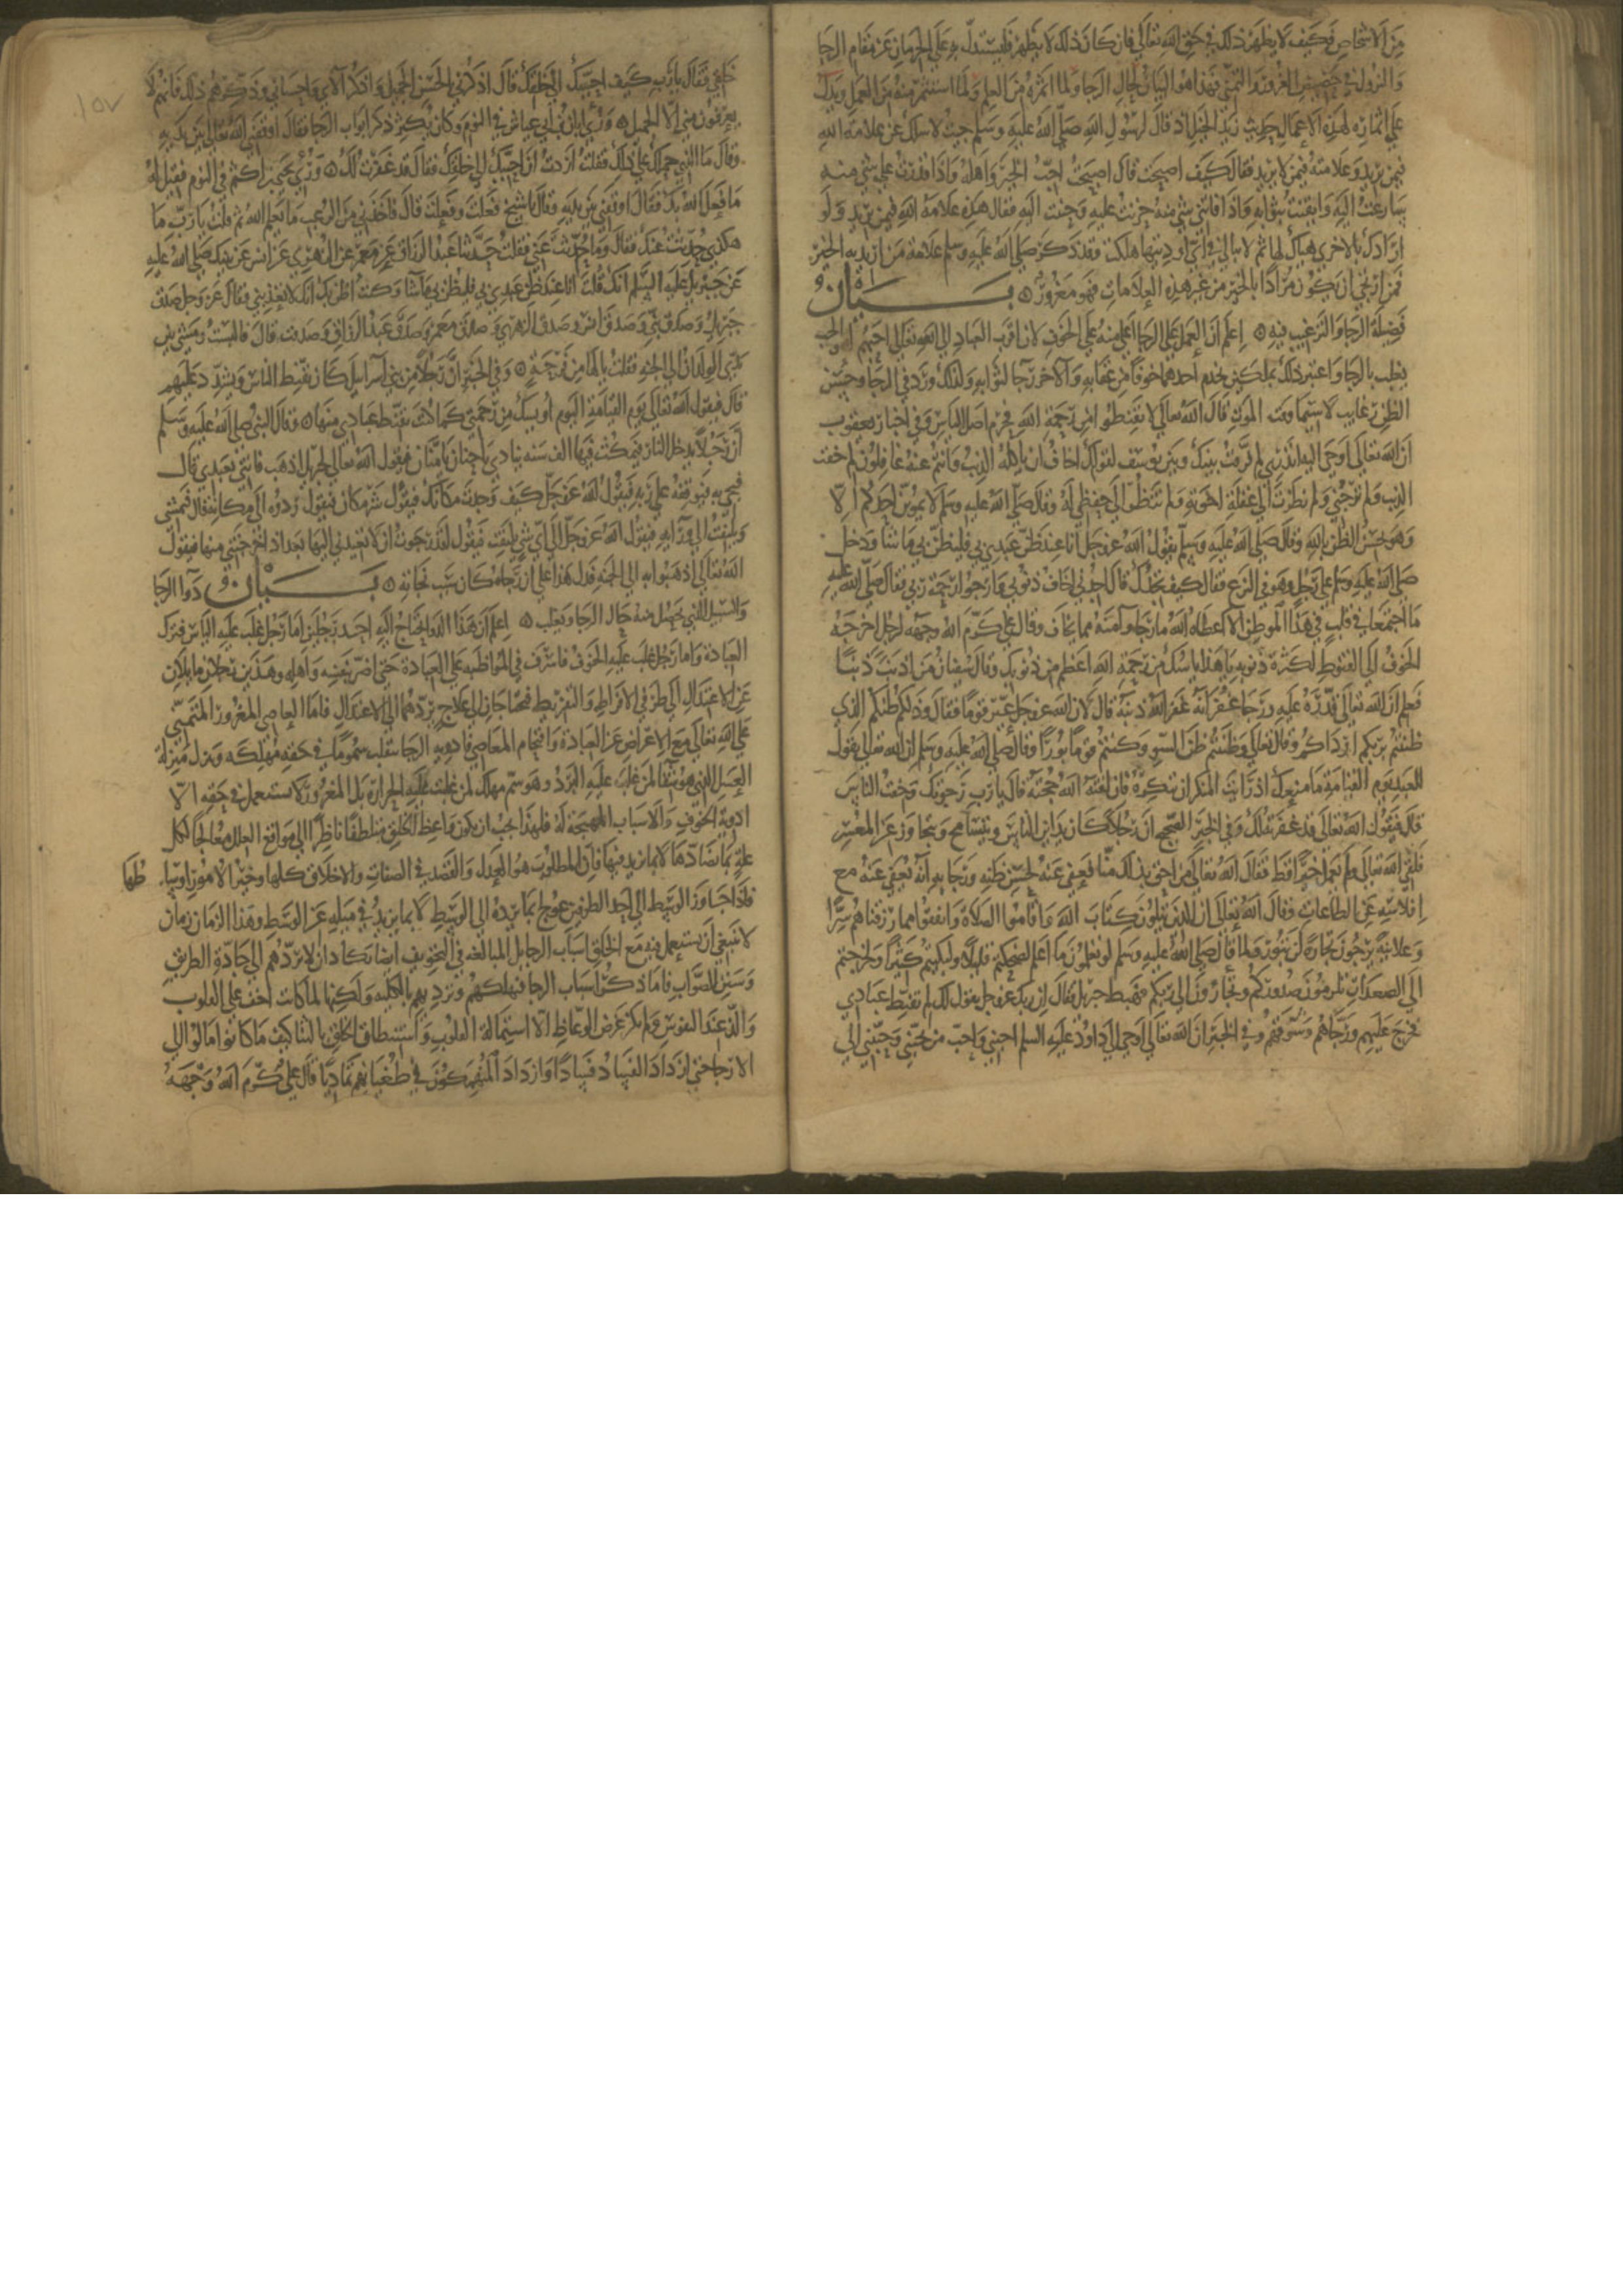 من الاشخاص فكيف لا يظهر ذلك في حق الله تعالى فان كان ذلك لا يظهر فليستدل به على الحرمان عن مقام الرجا
والنزول في حضيض الغرور والتمني فهذا هو البيان لحال الرجا ولما اثمره من العلم ولما استثمر منه من العمل ويدل
على اثماره لهذه الاعمال حديث زيد الخيل اذ قال لرسول الله صلى الله عليه وسلم جيت لاسلك عن علامة الله
فيمن يريد وعلامته فيمن لا يريد فقال كيف اصبحت قال اصبحت احب الخير واهله واذا قدرت على شي منه
سارعت اليه وايقنت بثوابه واذا فاتني شي منه حزنت عليه وحننت اليه فقال هذه علامة الله فيمن يريد ولو
ارادك بالاخرى هياك لها ثم لا يبالي في اي اوديتها هلكت فقد ذكر صلى الله عليه وسلم علامة من اريد به الخير
فمن ارتجى ان يكون مرادا بالخير من غير هذه العلامات فهو مغرور بيان
فضيلة الرجا والترغيب فيه اعلم ان العمل على الرجا اعلى منه على الخوف لان اقرب العباد الى الله تعالى احبهم له والحب
يغلب بالرجا واعتبر ذلك بملكين يخدم احدهما خوفا من عقابه والاخر رجا لثوابه ولذلك ورد في الرجا وحسن
الظن رغايب لا سيما وقت الموت قال الله تعالى لا تقنطوا من رحمة الله فحرم اصل الياس وفي اخبار يعقوب
ان الله تعالى اوحى اليه اتدري لم فرقت بينك وبين يوسف لقولك اخاف ان ياكله الذيب وانتم عنه غافلون لم خفت
الذيب ولم ترجني ولم نظرت الى غفلة اخوته ولم تنظر الى حفظي له وقال صلى الله عليه وسلم لا يموتن احدكم الا
وهو يحسن الظن بالله وقال صلى الله عليه وسلم يقول الله عز وجل انا عند ظن عبدي بي فليظن بي ما شا ودخل
صلى الله عليه وسلم على رجل وهو في النزع فقال كيف تجدك قال اجدني اخاف ذنوبي وارجو رحمة ربي فقال صلى الله عليه
ما اجتمعا في قلب في هذا الموطن الا اعطاه الله ما رجا وآمنه مما يخاف وقال علي كرم الله وجهه لرجل اخرجه
الخوف الى القنوط لكثرة ذنوبه يا هذا ياسك من رحمة الله اعظم من ذنوبك وقال سفيان من اذنب ذنبا
فعلم ان الله تعالى قدره عليه ورجا غفرانه غفر الله ذنبه قال لان الله عز وجل عير قوما فقال وذلكم ظنكم الذي
ظننتم بربكم ارداكم وقال تعالى وظننتم ظن السو وكنتم قوما بورا وقال صلى الله عليه وسلم ان الله تعالى يقول
للعبد يوم القيامة ما منعك اذ رايت المنكر ان تنكره فان لقنه الله حجته قال يا رب رجوتك وخفت الناس
قال فيقول الله تعالى قد غفرته لك وفي الخبر الصحيح ان رجلا كان يداين الناس ويتسامح ويتجاوز عن المعسر
فلقي الله تعالى ولم يعمل خيرا قط فقال الله تعالى من احق بذلك منا فعفي عنه لحسن ظنه ورجايه انه يعفى عنه مع
افلاسه عن الطاعات وقال الله تعالى ان الذين يتلون كتاب الله واقاموا الصلاة وانفقوا مما رزقناهم سرا
وعلانية يرجون تجارة لن تبور ولما قال صلى الله عليه وسلم لو تعلمون ما اعلم لضحكتم قليلا ولبكيتم كثيرا ولخرجتم
الى الصعدات تلدمون صدوركم وتجارون الى ربكم فهبط جبريل فقال ان ربك عز وجل يقول لك لم تقنط عبادي
فخرج عليهم ورجاهم وشوقهم وفي الخبر ان الله تعالى اوحى الى داود عليه السلم احبني واحب من يحبني وحببني الى
١٥٧
خلقي فقال يا رب كيف احببك الى خلقك قال اذكرني بالحسن الجميل واذكر آلاي واحساني وذكرهم ذلك فانهم لا
يعرفون مني الا الجميل ورئي ابان بن ابي عياش في النوم وكان يكثر ذكر ابواب الرجا فقال اوقفني الله تعالى بين يديه
وقال ما الذي حملك على ذلك فقلت اردت ان احببك الى خلقك فقال قد غفرت لك ورئي يحيى بن اكثم في النوم فقيل له
ما فعل الله بك فقال اوقفني بين يديه وقال يا شيخ فعلت وفعلت قال فاخذني من الرعب ما يعلم الله ثم قلت يا رب ما
هكذى حدثت عنك فقال وما حدثت عني فقلت حدثنا عبد الرزاق عن معمر عن الزهري عن انس عن نبيك صلى الله عليه
عن جبريل عليه السلم انك قلت انا عند ظن عبدي بي فليظن بي ما شا وكنت اظن بك انك لا تعذبني فقال عز وجل صدق
جبريل وصدق نبيي وصدق انس وصدق الزهري وصدق معمر وصدق عبد الرزاق وصدقت قال فالبست ومشى بين
يدي الولدان الى الجنة فقلت يا لها من فرحة وفي الخبر ان رجلا من بني اسرايل كان يقنط الناس ويشدد عليهم
قال فيقول الله تعالى يوم القيامة اليوم أويسك من رحمتي كما كنت تقنط عبادي منها وقال النبي صلى الله عليه وسلم
ان رجلا يدخل النار فيمكث فيها الف سنه ينادي يا حنان يا منان فيقول الله تعالى لجبريل اذهب فاتني بعبدي قال
فيجي به فيوقفه على ربه فيقول الله عز وجل كيف وجدت مكانك فيقول شر مكان فيقول ردوه الى مكانه قال فيمشي
ويلتفت الى ورآيه فيقول الله عز وجل الى اي شي تلتفت فيقول لقد رجوت ان لا تعيدني اليها بعد اذ اخرجتني منها فيقول
الله تعالى اذهبوا به الى الجنة فدل هذا على ان رجاه كان سبب نجاته بيان دوآ الرجا
والسبيل الذي يحصل منه حال الرجا ويغلب اعلم ان هذا الدوا يحتاج اليه احد رجلين اما رجل غلب عليه الياس فترك
العبادة واما رجل غلب عليه الخوف فاسرف في المواظبه على العبادة حتى اضر بنفسه واهله وهذين رجلان مايلان
عن الاعتدال الى طرفي الافراط والتفريط فيحتاجان الى علاج يردهما الى الاعتدال فاما العاصي المغرور المتمني
على الله تعالى مع الاعراض عن العبادة واقتحام المعاصي فادوية الرجا تنقلب سموما في حقه مهلكه وتنزل منزلة
العسل الذي هو شفا لمن غلب عليه البرد وهو سم مهلك لمن غلبت عليه الحرارة بل المغرور لا يستعمل في حقه الا
ادوية الخوف والاسباب المهيجة له فلهذا يجب ان يكون واعظ الخلق متلطفا ناظرا الى مواقع العلل معالجا لكل
علة بما يضادها لا بما يزيد فيها فان المطلوب هو العدل والقصد في الصفات والاخلاق كلها وخير الامور اوسا
طها
فاذا جاوز الوسط الى احد الطرفين عولج بما يرده الى الوسط لا بما يزيد في ميله عن الوسط وهذا الزمان زمان
لا ينبغي ان يستعمل فيه مع الخلق اسباب الرجا بل المبالغه في التخويف ايضا تكاد ان لا تردهم الى جادة الطريق
وسنن الصواب فاما ذكر اسباب الرجا فتهلكهم وترديهم بالكليه ولكنها لما كانت اخف على القلوب
والذ عند النفوس ولم يكن غرض الوعاظ الا استمالة القلوب واستنطاق الخلق بالثنا كيف ما كانوا مالوا الى
الارجا حتى ازداد الفساد فسادا وازداد المنهمكون في طغيانهم تماديا قال علي كرم الله وجهه